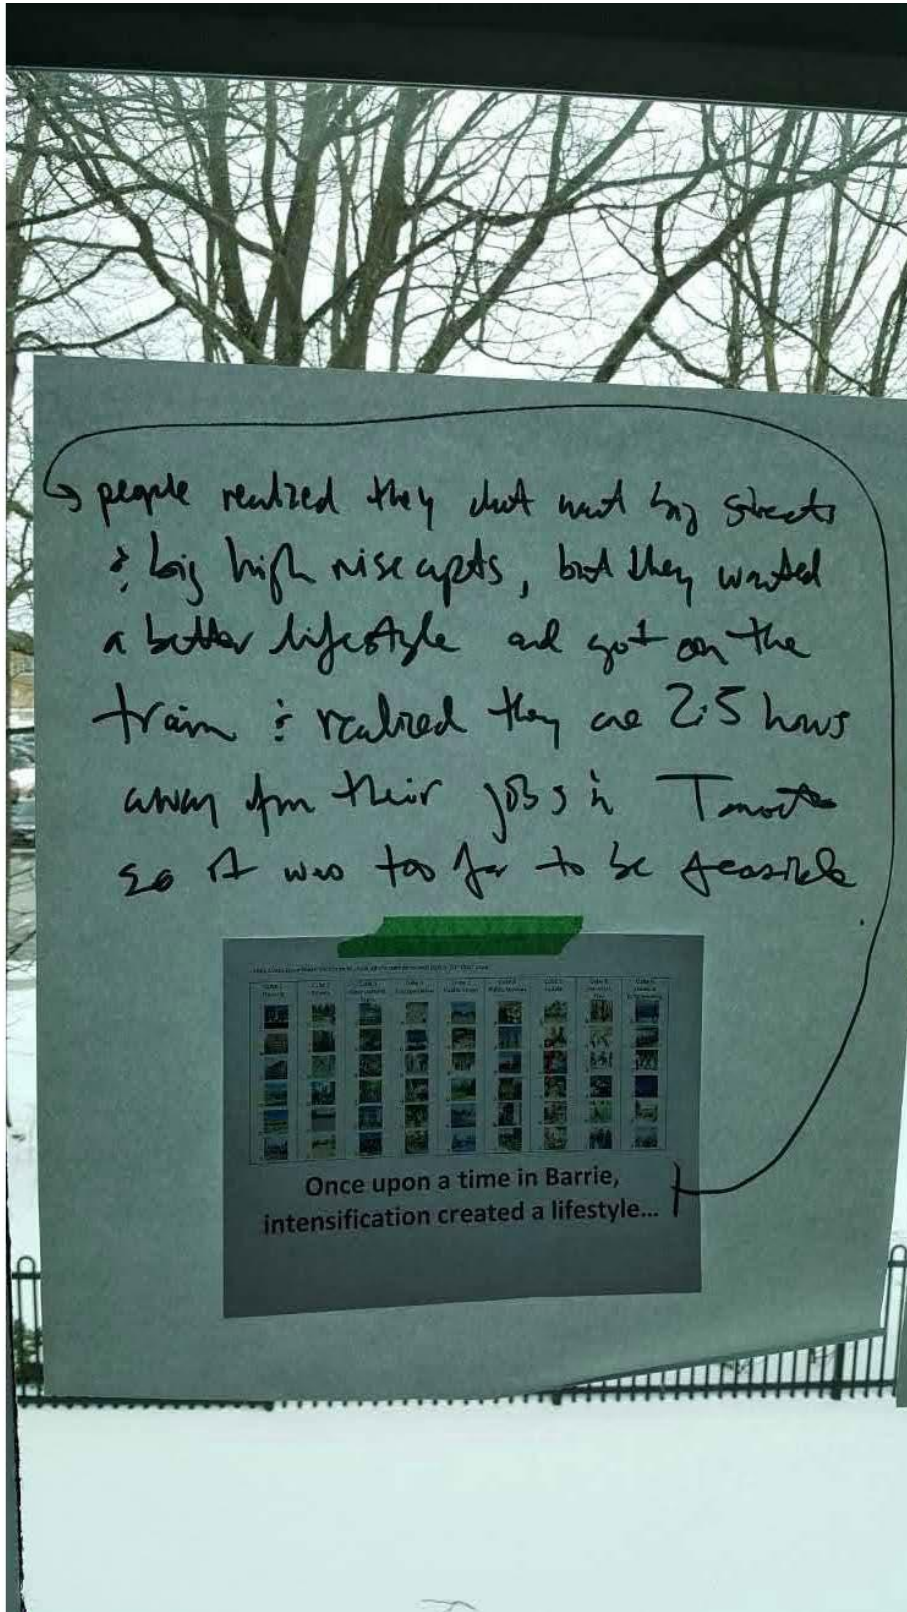 people realized they dont want big streets
& big high rise apts, but they wanted
a better lifestyle and got on the
train & realized they are 2.5 hours
away from their jobs in Toronto
so it was too far to be feasible
Once upon a time in Barrie,
intensification created a lifestyle...